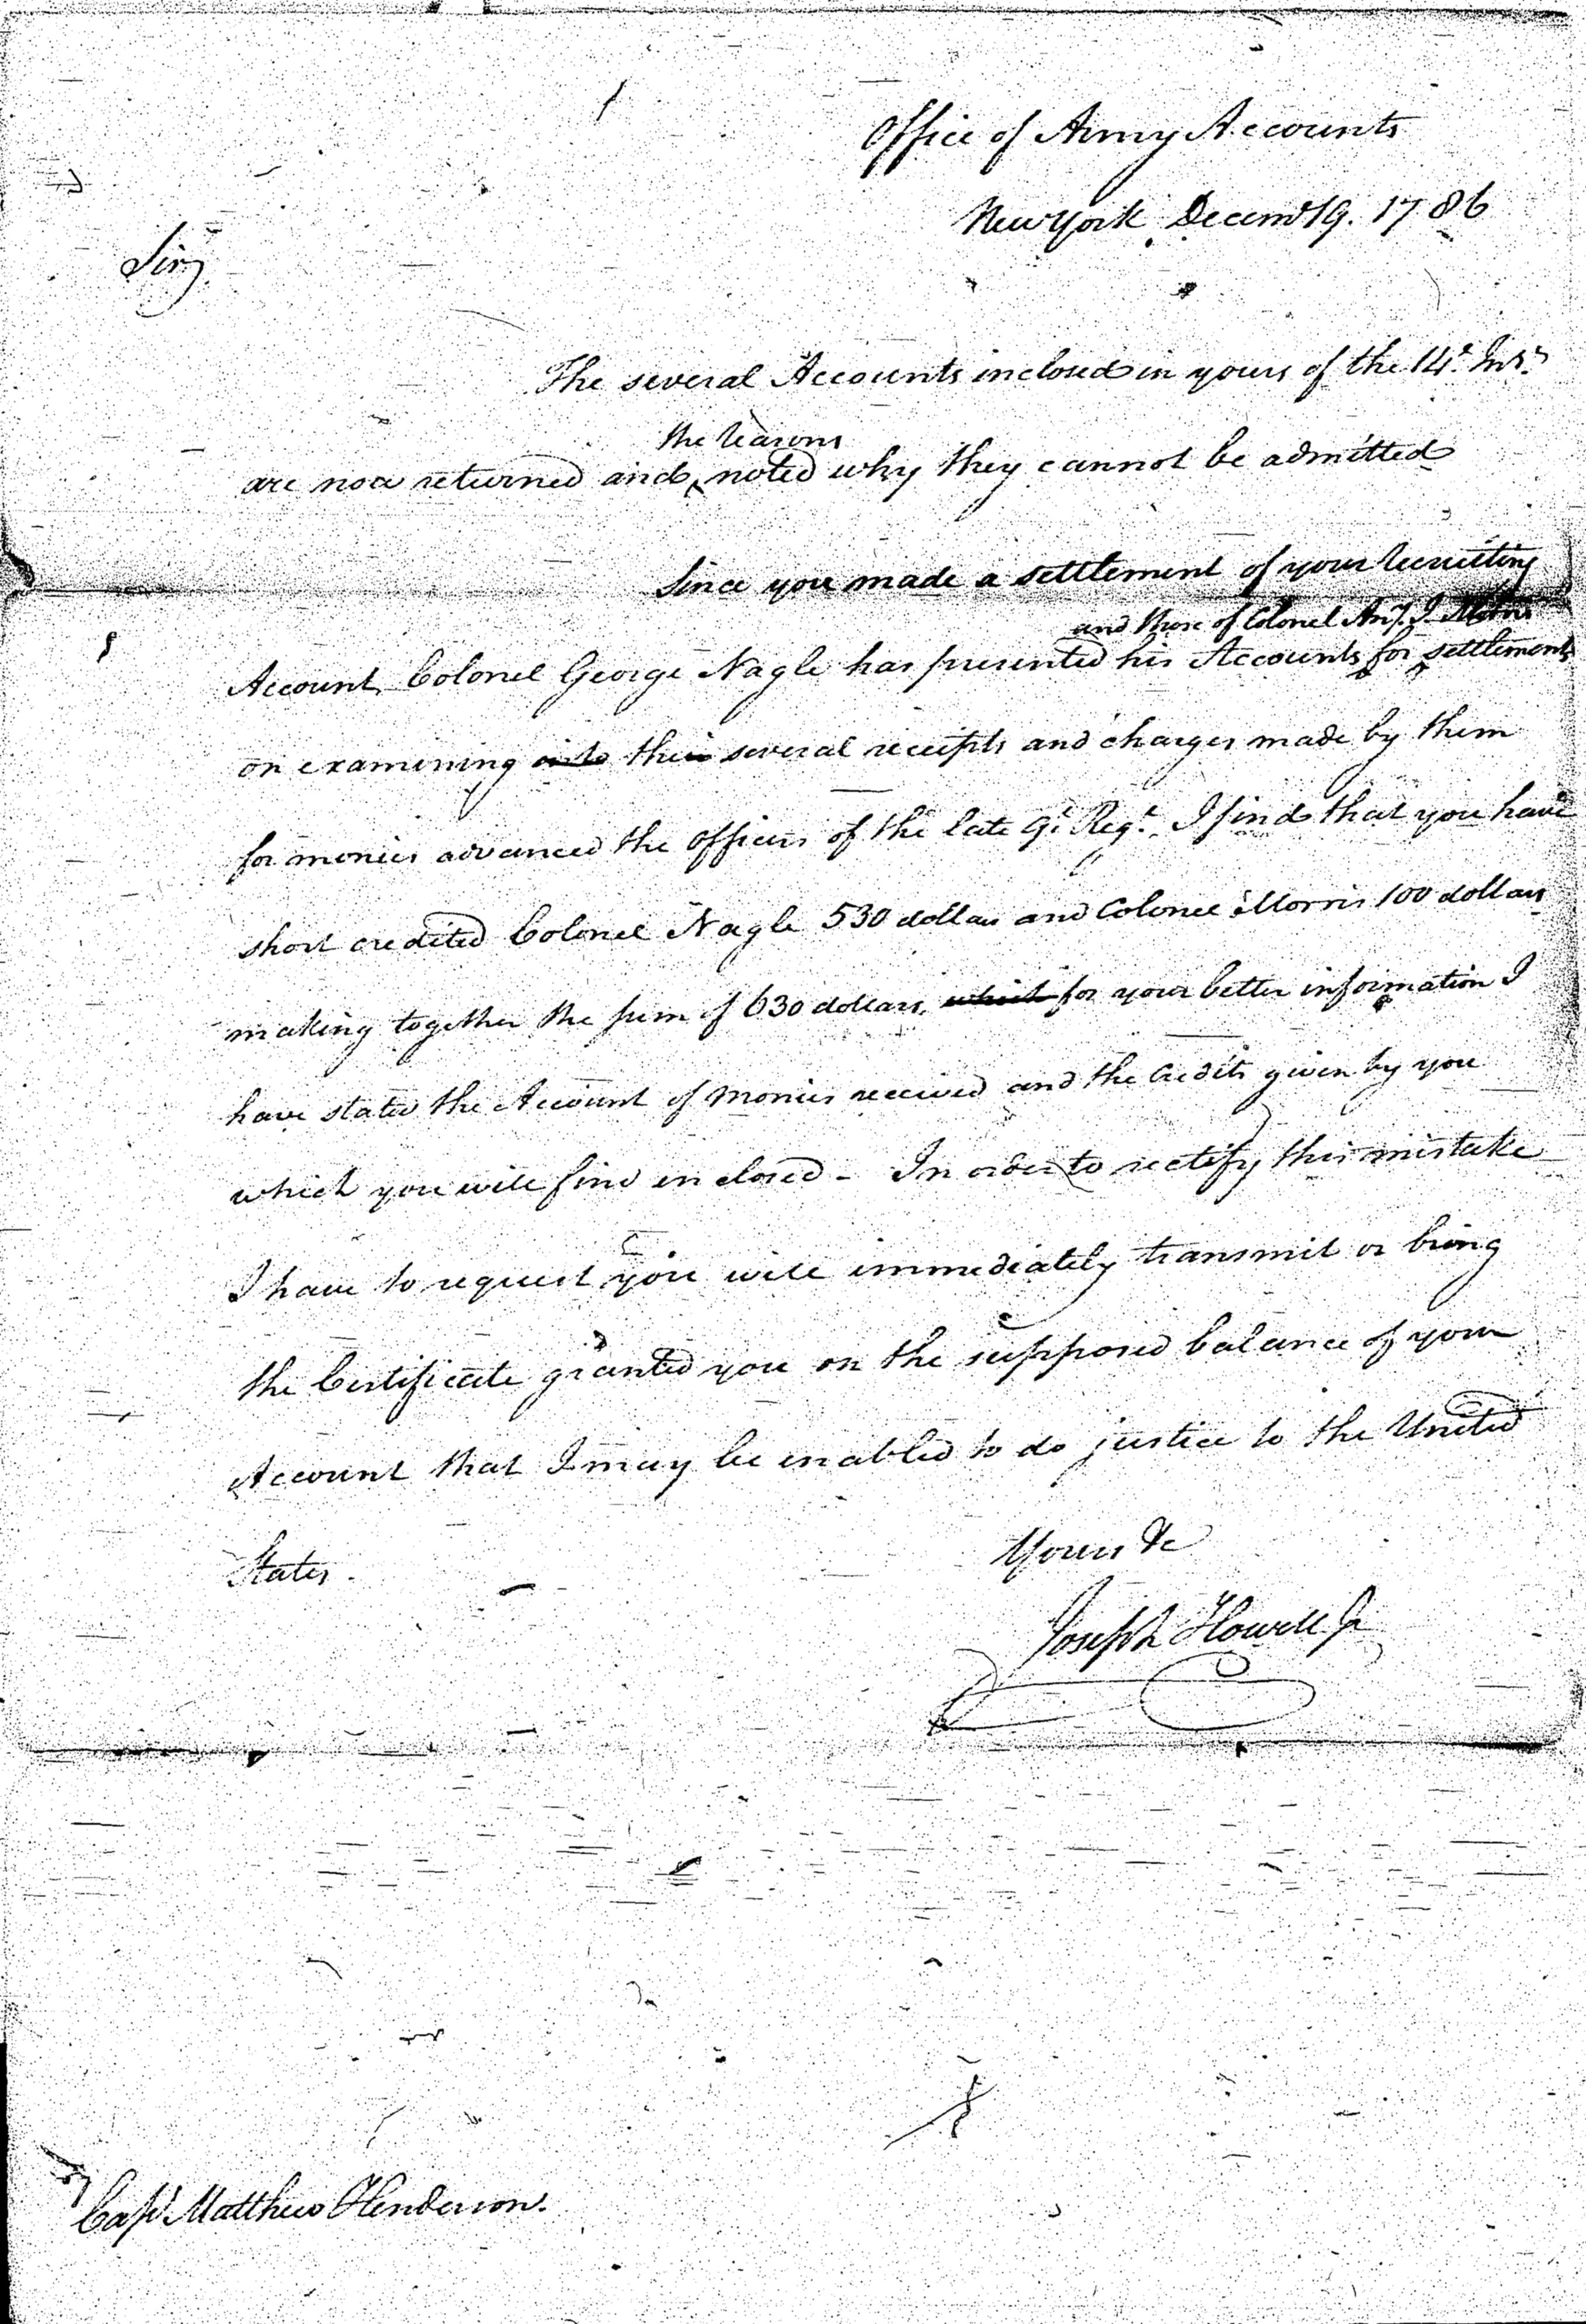 Office of Army Accounts
New York Decemr 19. 1786
Sir,
The several Accounts inclosed in yours of the 14t. Inst.
the reasons
are now returned and noted why they cannot be admitted
Since you made a settlement of your recruiting
and those of Colonel Any. J Morris
Account, Colonel George Nagle has presented his Accounts for settlement
on examining into their several receipts and charges made by them
for monies advanced the officers of the late 9t. Regt. I find that you have
short credited Colonel Nagle 530 dollars and Colonel Morris 100 dollars
making together the sum of 630 dollars, which for your better information I
have stated the Account of monies received and the Credits given by you
which you will find inclosed - In order to rectify this mistake
I have to request you will immediately transmit or bring
the Certificate granted you on the supposed balance of your
Account that I may be enabled to do justice to the United
States.
Yours &c
Joseph Howell Jr
Capt Matthew Henderson.